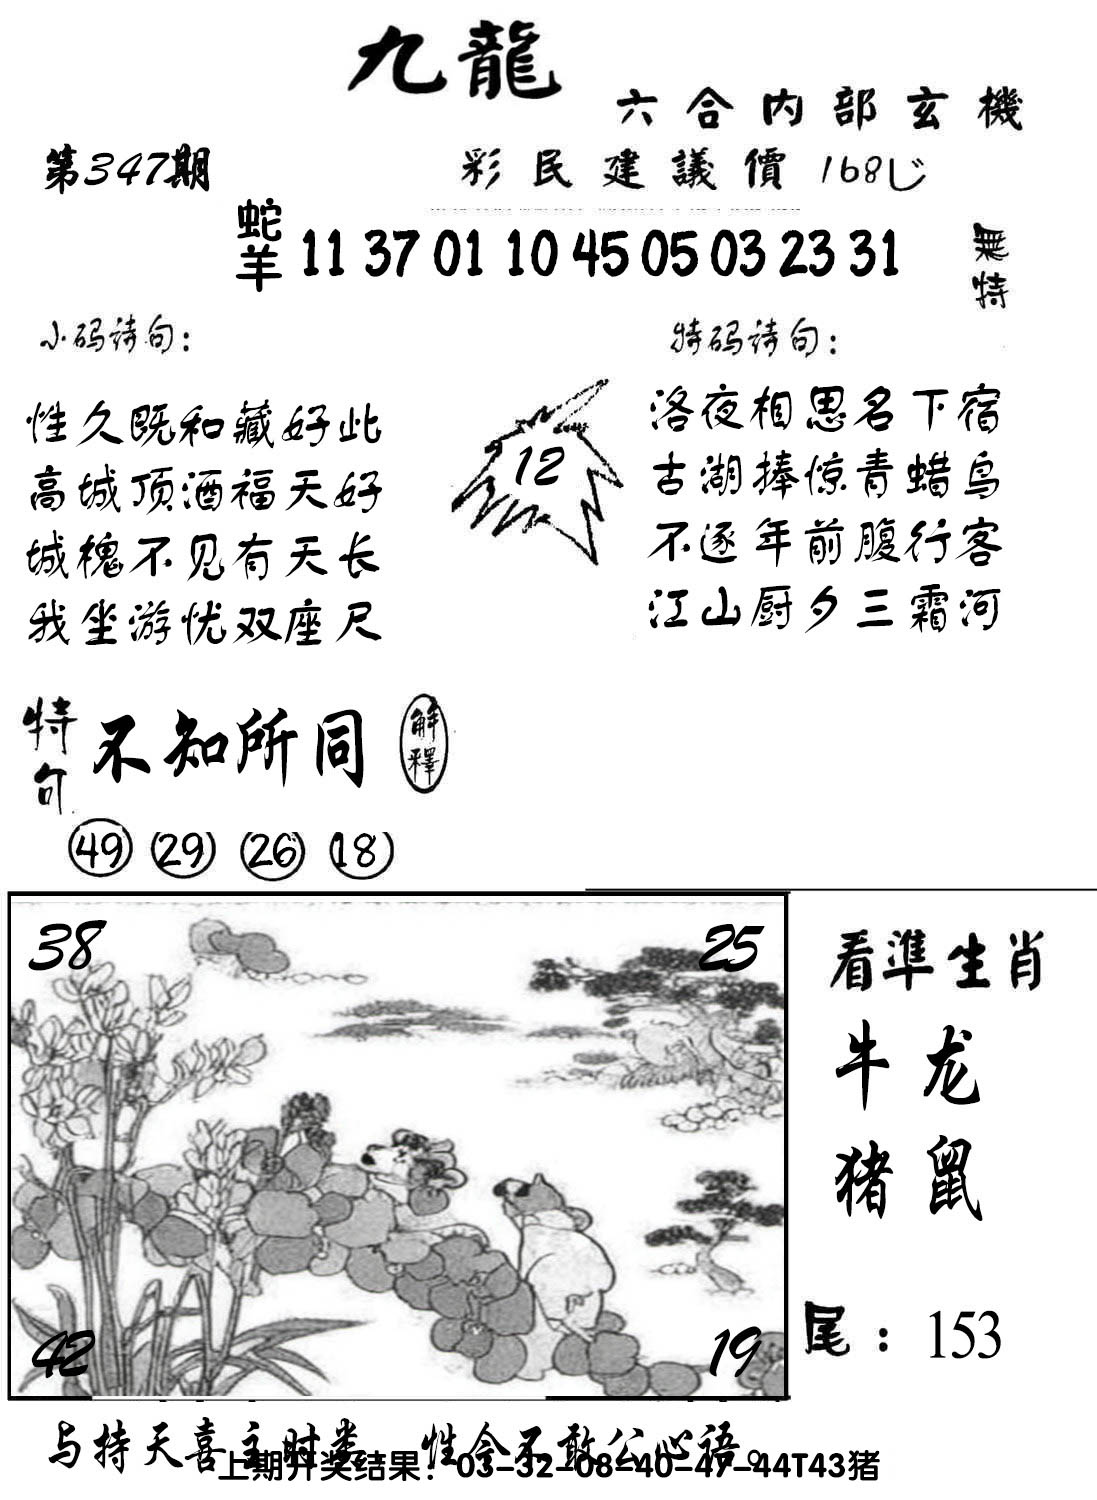 九龍
六合内部玄機
第347期
彩民建議價168
蛇羊 11 37 01 10 45 05 03 23 31
無特
小码诗句：
性久既和藏好此
高城顶酒福天好
城槐不见有天长
我坐游忧双座尺
12
特码诗句：
洛夜相思名下宿
古湖捧惊青蜡鸟
不逐年前腹行客
江山厨夕三霜河
特句 不知所同 解釋
49 29 26 18
38 25
42 19
看準生肖
牛龙
猪鼠
尾：153
与持天喜主时类 性令不敢公心语。
上期开奖结果：03-32-08-40-47-44T43猪